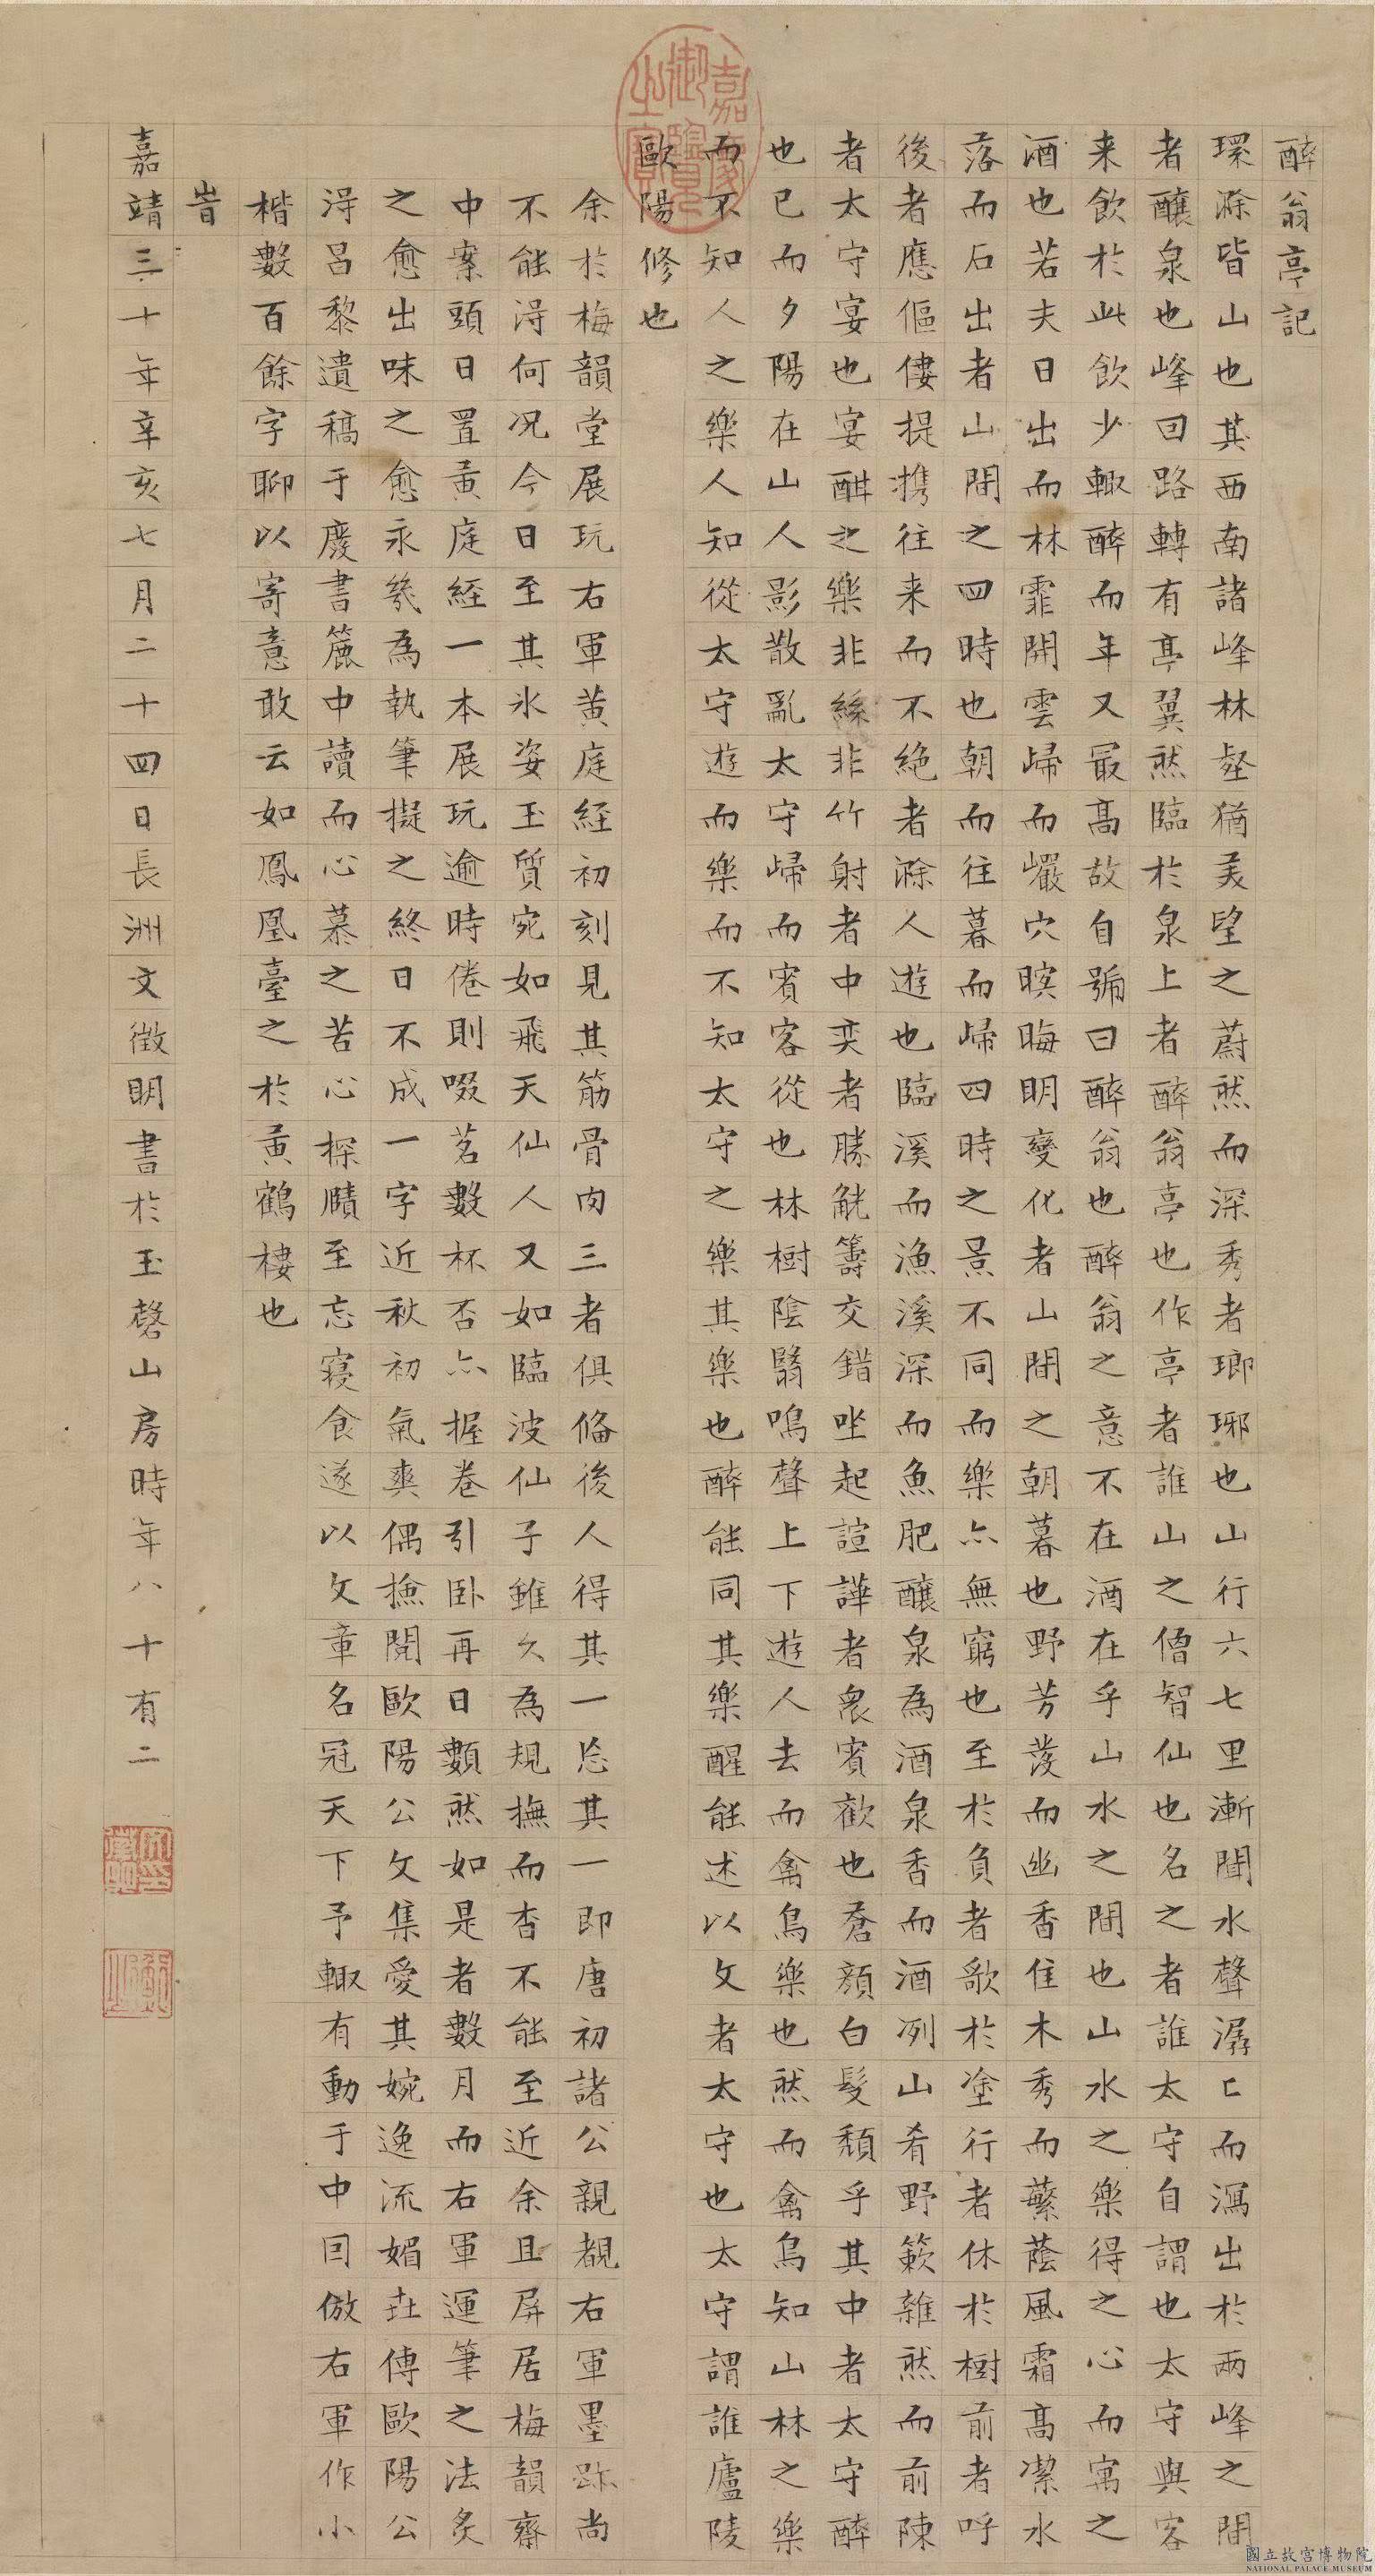 醉翁亭記
環滁皆山也其西南諸峰林壑猶美望之蔚然而深秀者瑯琊也山行六七里漸聞水聲潺〻而瀉出於兩峰之間
者釀泉也峰回路轉有亭翼然臨於泉上者醉翁亭也作亭者誰山之僧智仙也名之者誰太守自謂也太守與客
来飲於此飲少輒醉而年又最高故自號曰醉翁也醉翁之意不在酒在乎山水之間也山水之樂得之心而寓之
酒也若夫日出而林霏開雲歸而巖穴暝晦明變化者山間之朝暮也野芳發而幽香佳木秀而蘩蔭風霜高潔水
落而石出者山間之四時也朝而往暮而歸四時之景不同而樂亦無窮也至於負者歌於塗行者休於樹前者呼
後者應傴僂提攜往来而不絶者滁人遊也臨溪而漁溪深而魚肥釀泉為酒泉香而酒冽山肴野簌雜然而前陳
者太守宴也宴酣之樂非絲非竹射者中奕者勝觥籌交錯坐起諠譁者衆賓歡也蒼顏白髮頹乎其中者太守醉
也已而夕陽在山人影散亂太守歸而賓客從也林樹陰翳鳴聲上下遊人去而禽鳥樂也然而禽鳥知山林之樂
而不知人之樂人知從太守遊而樂而不知太守之樂其樂也醉能同其樂醒能述以文者太守也太守謂誰廬陵
歐陽修也
余於梅韻堂展玩右軍黄庭經初刻見其筋骨肉三者俱俻後人得其一忘其一即唐初諸公親覩右軍墨跡尚
不能淂何况今日至其氷姿玉質宛如飛天仙人又如臨波仙子雖久為規撫而杳不能至近余且屏居梅韻齋
中案頭日置黄庭經一本展玩逾時倦則啜茗數杯否亦握卷引卧再日類然如是者數月而右軍運筆之法炙
之愈出味之愈永㡬為執筆擬之終日不成一字近秋初氣爽偶撿閲歐陽公文集愛其婉逸流媚𡊮傳歐陽公
淂昌黎遺稿于廢書簏中讀而心慕之苦心探賾至忘寢食遂以文章名冠天下予輒有動于中囙倣右軍作小
楷數百餘字聊以寄意敢云如鳳凰臺之於黄鶴樓也
旹
嘉靖三十年辛亥七月二十四日長洲文徵明書於玉磬山房時年八十有二
嘉慶御覽之寶
國立故宮博物院
NATIONAL PALACE MUSEUM